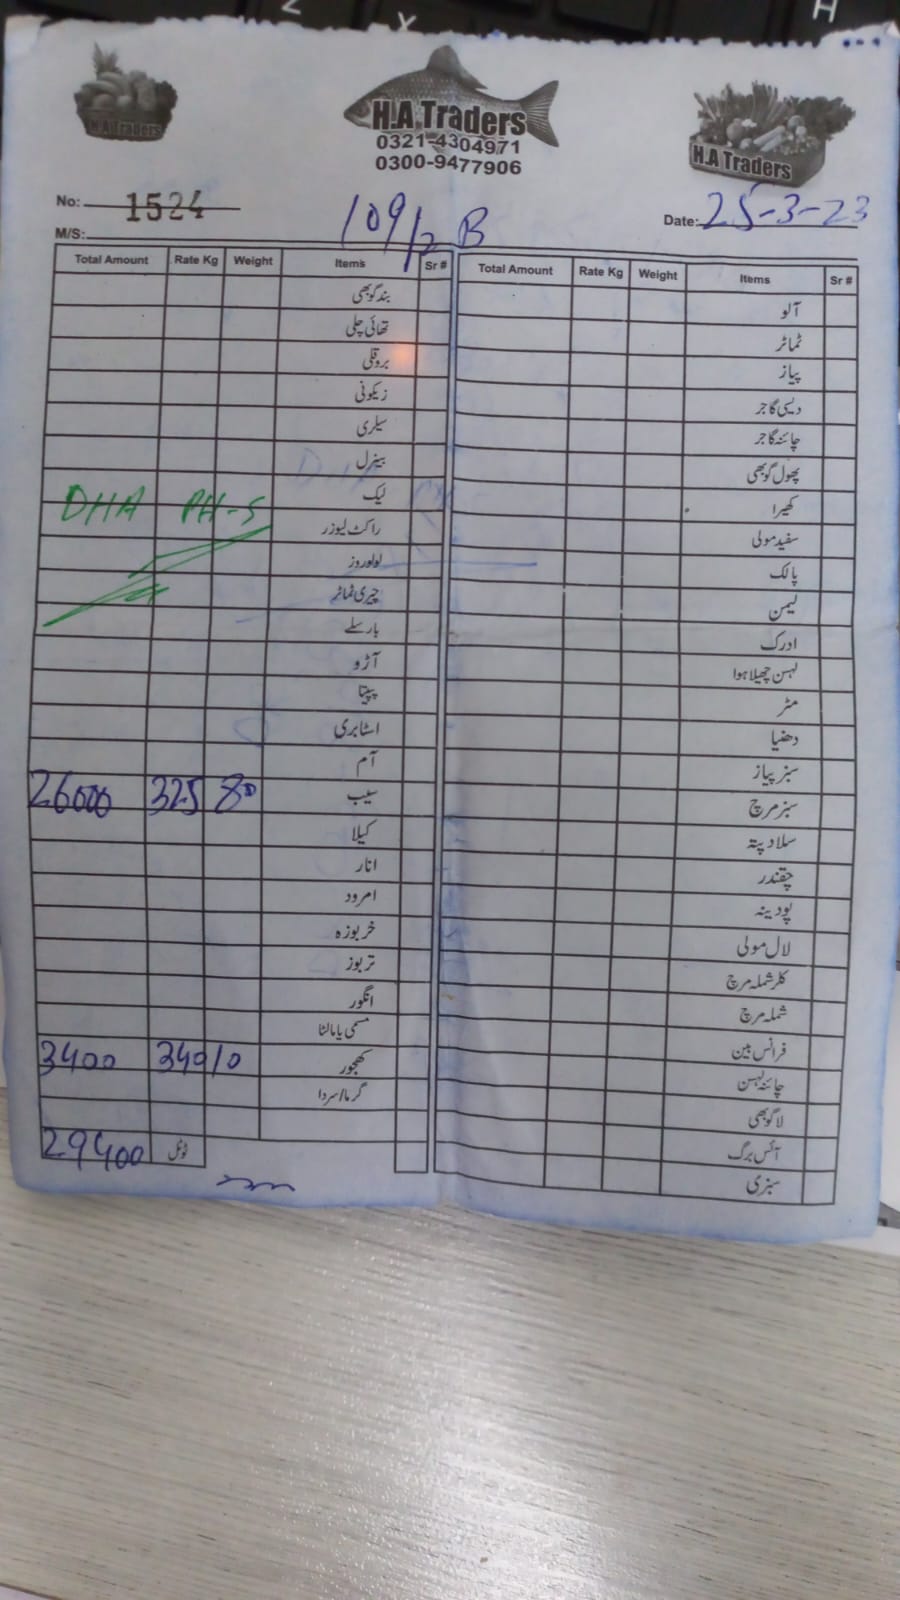 H.A Traders
H.A Traders
0321-4304971
0300-9477906
H.A Traders
No: 1524
109/2 B
Date: 25-3-23
M/S:
Total Amount Rate Kg Weight Items Sr #
بند گوبھی
تھائی چلی
بروقلی
زیکونی
سیلری
بینزل
DHA PH-5
لیک
راکٹ لیوزر
لولوروز
چیری ٹماٹر
پارسلے
آڑو
پپیتا
اسٹابری
آم
26000 325 80 سیب
کیلا
انار
امرود
خربوزہ
تربوز
انگور
مسمی یا مالٹا
3400 340 10 کھجور
گرما/سردا
29400 ٹوٹل
Total Amount Rate Kg Weight Items Sr #
آلو
ٹماٹر
پیاز
دیسی گاجر
چائنہ گاجر
پھول گوبھی
کھیرا
سفید مولی
پالک
لیمن
ادرک
لہسن چھیلا ہوا
مٹر
دھنیا
سبز پیاز
سبز مرچ
سلاد پتہ
چقندر
پودینہ
لال مولی
کلر شملہ مرچ
شملہ مرچ
فرانس بین
چائنہ لہسن
لا گوبھی
آئس برگ
سبزی